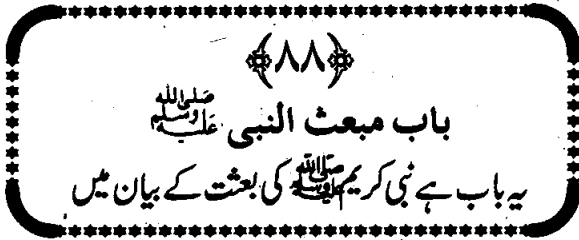 ﴿٨٨﴾
باب مبعث النبي ﷺ
یہ باب ہے نبی کریم ﷺ کی بعثت کے بیان میں